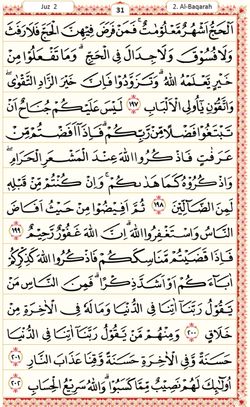 Juz 2
31
2. Al-Baqarah
اَلْحَجُّ اَشْهُرٌ مَّعْلُوْمٰتٌ ۚ فَمَنْ فَرَضَ فِيْهِنَّ الْحَجَّ فَلَا رَفَثَ
وَلَا فُسُوْقَ ۙ وَلَا جِدَالَ فِى الْحَجِّ ؕ وَمَا تَفْعَلُوْا مِنْ
خَيْرٍ يَّعْلَمْهُ اللّٰهُ ؔؕ وَتَزَوَّدُوْا فَاِنَّ خَيْرَ الزَّادِ التَّقْوٰى
وَاتَّقُوْنِ يٰٓاُولِى الْاَلْبَابِ ۝۱۹۷ لَيْسَ عَلَيْكُمْ جُنَاحٌ اَنْ
تَبْتَغُوْا فَضْلًا مِّنْ رَّبِّكُمْ ؕ فَاِذَآ اَفَضْتُمْ مِّنْ
عَرَفٰتٍ فَاذْكُرُوا اللّٰهَ عِنْدَ الْمَشْعَرِ الْحَرَامِ ۪
وَاذْكُرُوْهُ كَمَا هَدٰىكُمْ ۚ وَاِنْ كُنْتُمْ مِّنْ قَبْلِهٖ
لَمِنَ الضَّآلِّيْنَ ۝۱۹۸ ثُمَّ اَفِيْضُوْا مِنْ حَيْثُ اَفَاضَ
النَّاسُ وَاسْتَغْفِرُوا اللّٰهَ ؕ اِنَّ اللّٰهَ غَفُوْرٌ رَّحِيْمٌ ۝۱۹۹
فَاِذَا قَضَيْتُمْ مَّنَاسِكَكُمْ فَاذْكُرُوا اللّٰهَ كَذِكْرِكُمْ
اٰبَآءَكُمْ اَوْ اَشَدَّ ذِكْرًا ؕ فَمِنَ النَّاسِ مَنْ
يَّقُوْلُ رَبَّنَآ اٰتِنَا فِى الدُّنْيَا وَمَا لَهٗ فِى الْاٰخِرَةِ مِنْ
خَلَاقٍ ۝۲۰۰ وَمِنْهُمْ مَّنْ يَّقُوْلُ رَبَّنَآ اٰتِنَا فِى الدُّنْيَا
حَسَنَةً وَّفِى الْاٰخِرَةِ حَسَنَةً وَّقِنَا عَذَابَ النَّارِ ۝۲۰۱
اُولٰٓئِكَ لَهُمْ نَصِيْبٌ مِّمَّا كَسَبُوْا ؕ وَاللّٰهُ سَرِيْعُ الْحِسَابِ ۝۲۰۲